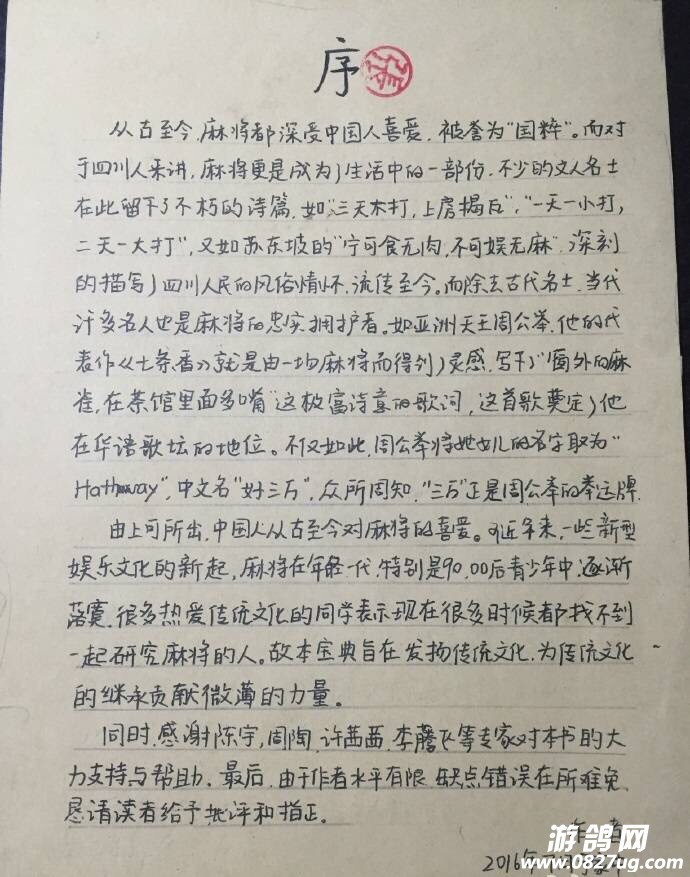 序
从古至今,麻将都深受中国人喜爱,被誉为"国粹"。而对
于四川人来讲,麻将更是成为了生活中的一部份,不少的文人名士
在此留下了不朽的诗篇,如"三天不打,上房揭瓦","一天一小打,
二天一大打",又如苏东坡的"宁可食无肉,不可娱无麻",深刻
的描写了四川人民的风俗情怀,流传至今。而除去古代名士,当代
许多名人也是麻将的忠实拥护者。如亚洲天王周公举,他的代
表作《七条香》就是由一场麻将而得到了灵感,写下了"窗外的麻
雀,在茶馆里面多嘴"这极富诗意的歌词,这首歌奠定了他
在华语歌坛的地位。不仅如此,周公举将她女儿的名字取为"
Hathaway",中文名"好三万",众所周知,"三万"正是周公举的幸运牌.
由上可所出,中国人从古至今对麻将的喜爱。近年来,一些新型
娱乐文化的新起,麻将在年轻一代,特别是90,00后青少年中,逐渐
落寞,很多热爱传统文化的同学表示现在很多时候都找不到
一起研究麻将的人。故本宝典旨在发扬传统文化,为传统文化
的继承贡献微薄的力量。
同时,感谢陈宇,周陶,许茜茜,李腾飞等专家对本书的大
力支持与帮助。最后,由于作者水平有限,缺点错误在所难免,
恳请读者给予批评和指正。
作者
2016年
游鸽网
www.0827ug.com